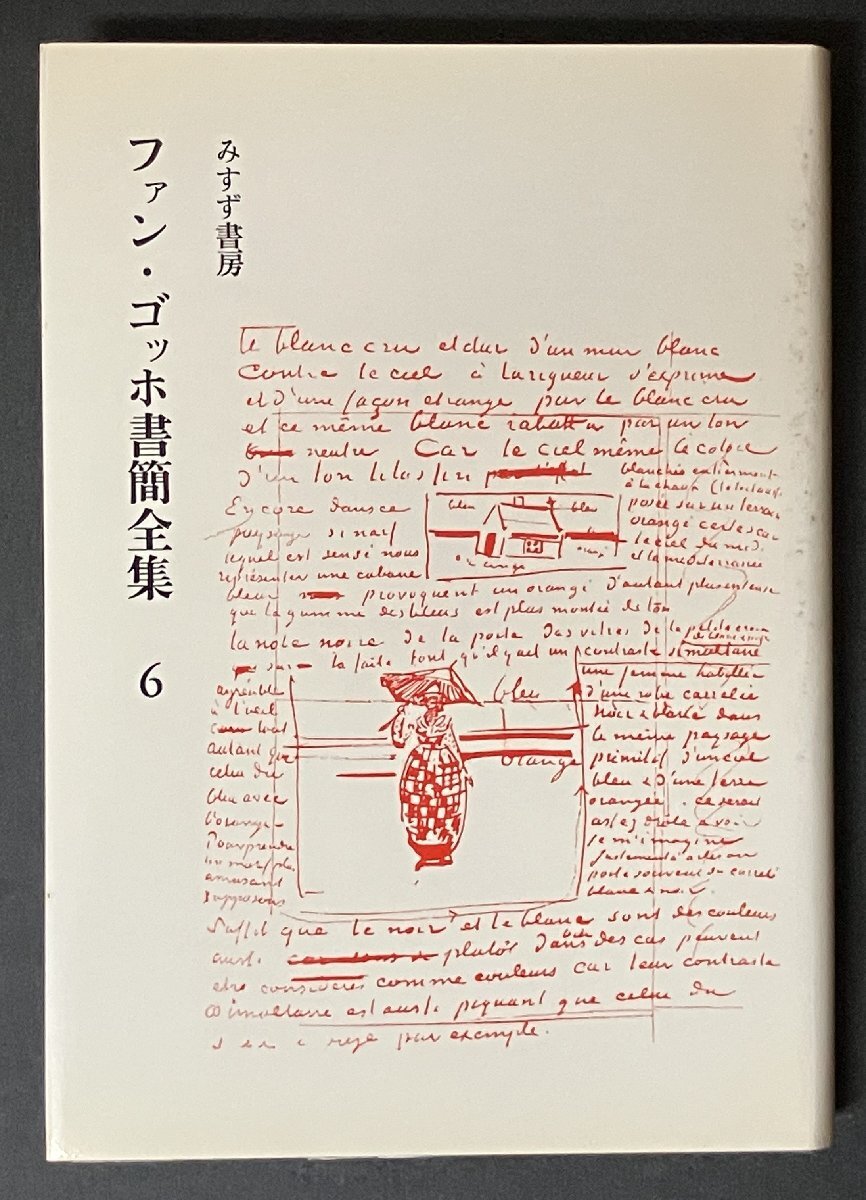 ファン・ゴッホ書簡全集 6
みすず書房
le blanc cru et dur d'un mur blanc
contre le ciel à la rigueur s'exprime
et d'une façon etrange par le blanc cru
et ce même blanc rabattu par un ton
neutre Car le ciel même le colore
d'un ton lilas fin
blanchie entierement
à la chaux
Encore dans ce
paysage si naif
lequel est sensé nous
représenter une cabane
bleu
bleu
orange
orangé
posée sur un terrain
orangé certes car
le ciel du midi
et la mediterranée
bleue
provoquent un orangé d'autant plus intense
que la gamme des bleus est plus montée de ton
la note noire de la porte des vitres de la petite croix
sur le faite font qu'il y ait un contraste simultané
agréable
à l'oeil
tout
autant que
celui du
bleu avec
l'orangé
Pour prendre
un motif plus
amusant
supposons
bleu
orange
une femme habillée
d'une robe carrelée
noir et blanc dans
le même paysage
primitif d'un ciel
bleu et d'une terre
orangée. ce serait
assez drôle a voir
je m'imagine
justement à Arles on
porte souvent du carrelé
blanc et noir.
Suffit que le noir et le blanc sont des couleurs
aussi
plutôt dans des cas peuvent
etre considérés comme couleurs car leur contraste
simultané est aussi piquant que celui du
rouge par exemple.